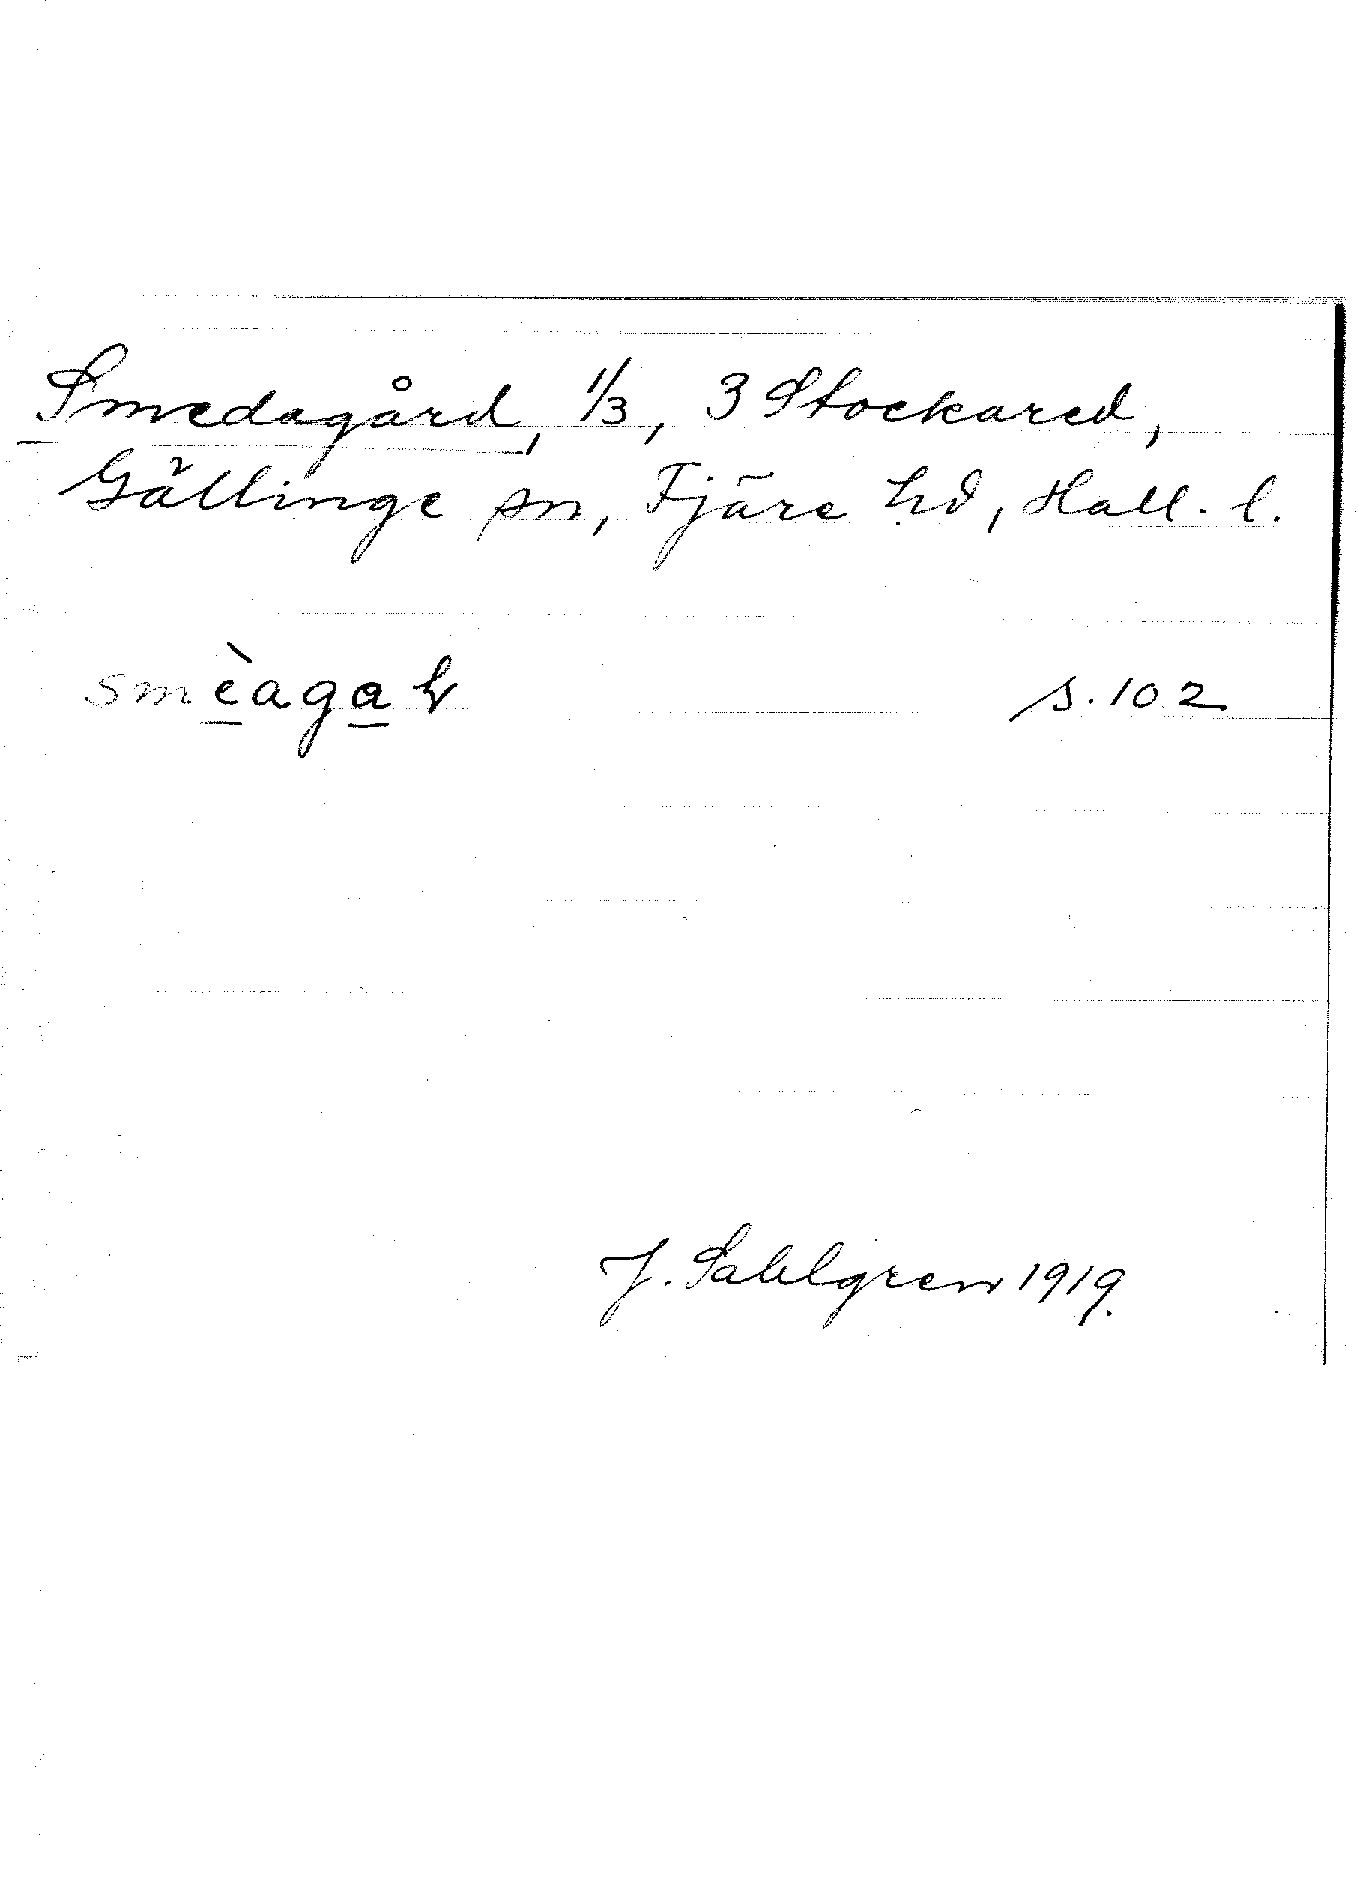 Smedagård, 1/3, 3 Stockared,
Gällinge sn, Fjäre hd, Hall. l.
smèagaɫ s. 102
J. Sahlgren 1919.